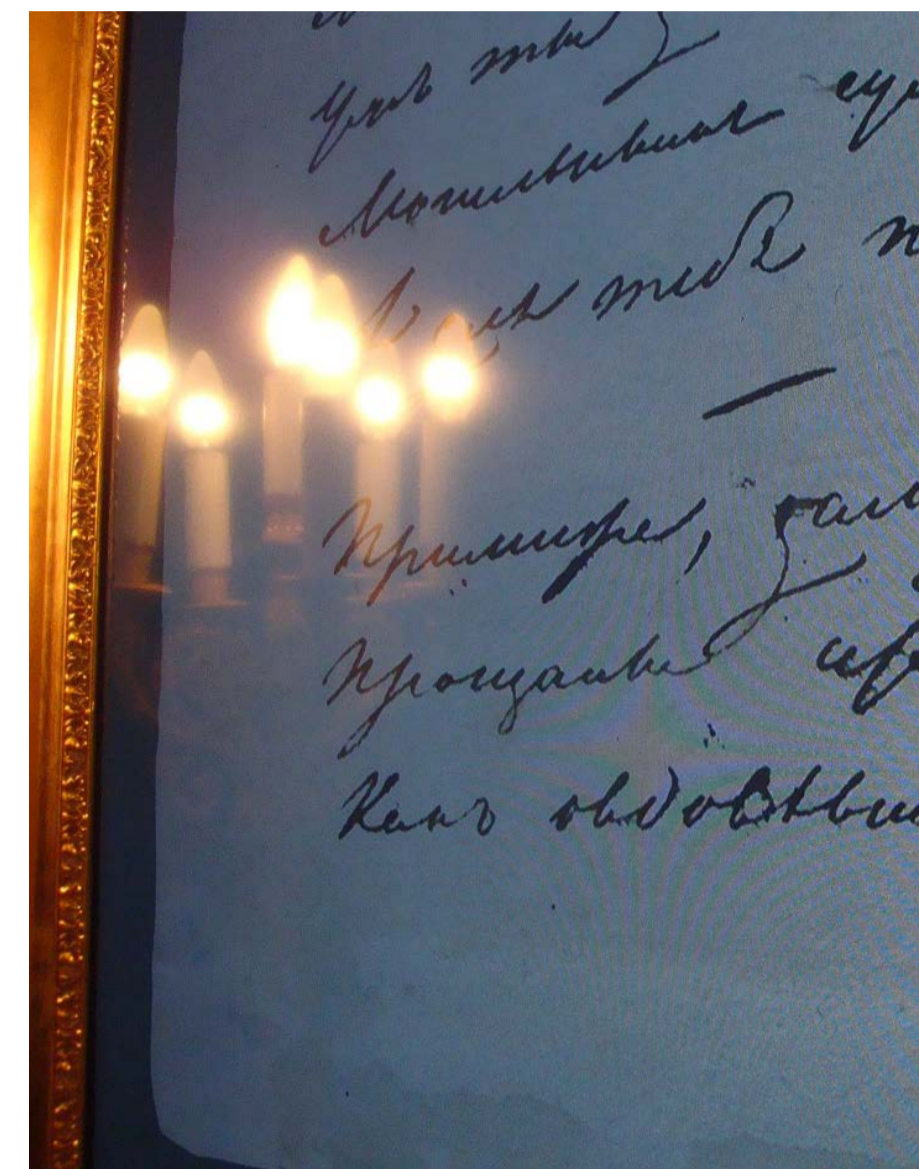 Ужъ ты
Могильнымъ су
тебя
Прими же, даль
Прощанье сер
Какъ овдовѣвш